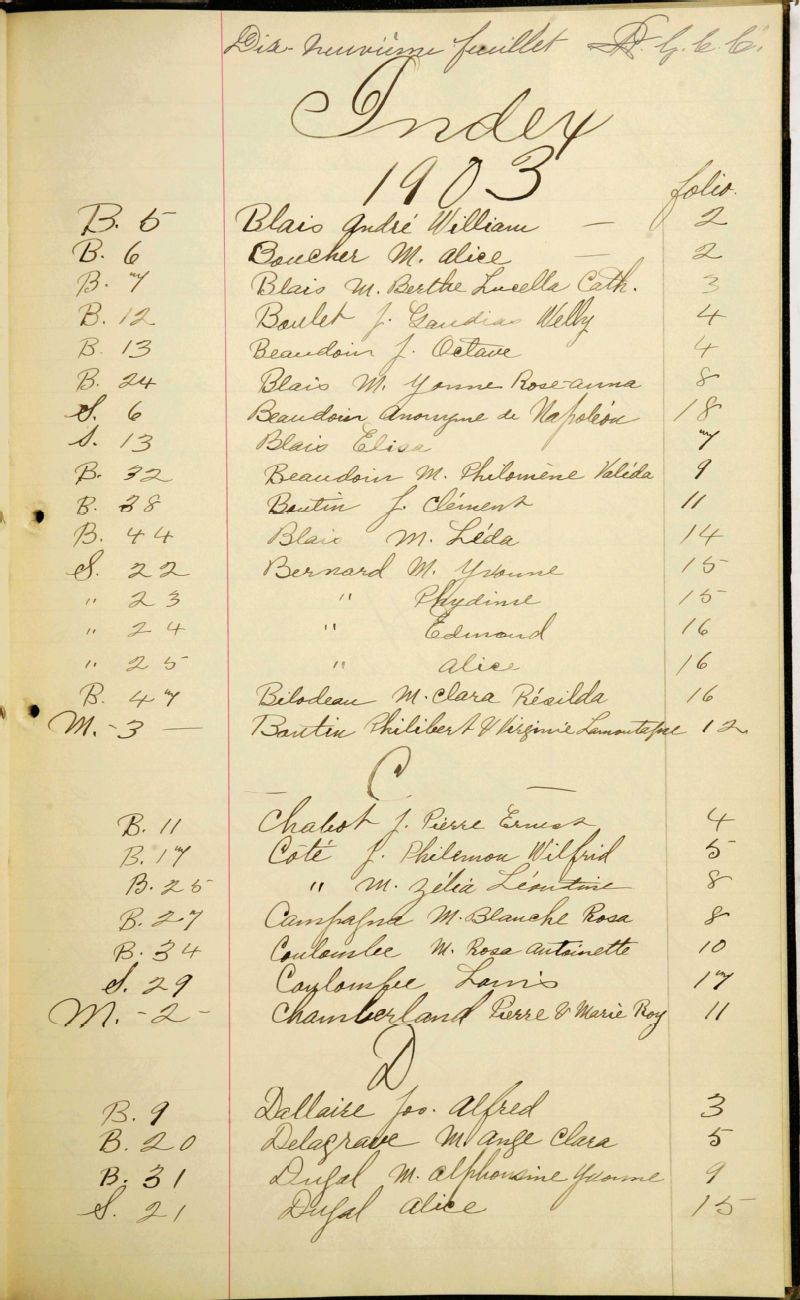 Dix-neuvième feuillet P. G. C. C.
Index
1903
folio.
B. 5 Blais André William — 2
B. 6 Boucher M. Alice — 2
B. 7 Blais M. Berthe Lucella Cath. 3
B. 12 Boulet J. Gaudias Welly 4
B. 13 Beaudoin J. Octave 4
B. 24 Blais M. Yvonne Rose-anna 8
S. 6 Beaudoin anonyme de Napoléon 18
S. 13 Blais Elisa 7
B. 32 Beaudoin M. Philomène Valéda 9
B. 38 Boutin J. Clément 11
B. 44 Blais M. Léda 14
S. 22 Bernard M. Yvonne 15
" 23 " Phydime 15
" 24 " Edmond 16
" 25 " Alice 16
B. 47 Bilodeau M. Clara Résilda 16
M. - 3 — Boutin Philibert & Virginie Lamontagne 12
— C —
B. 11 Chabot J. Pierre Ernest 4
B. 17 Côté J. Philemon Wilfrid 5
B. 25 " M. Zélia Léontine 8
B. 27 Campagna M. Blanche Rosa 8
B. 34 Coulombe M. Rosa Antoinette 10
S. 29 Coulombe Louis 17
M. - 2 - Chamberland Pierre & Marie Roy 11
D
B. 9 Dallaire Jos. Alfred 3
B. 20 Delagrave M Ange Clara 5
B. 31 Dugal M. Alphonsine Yvonne 9
S. 21 Dugal Alice 15